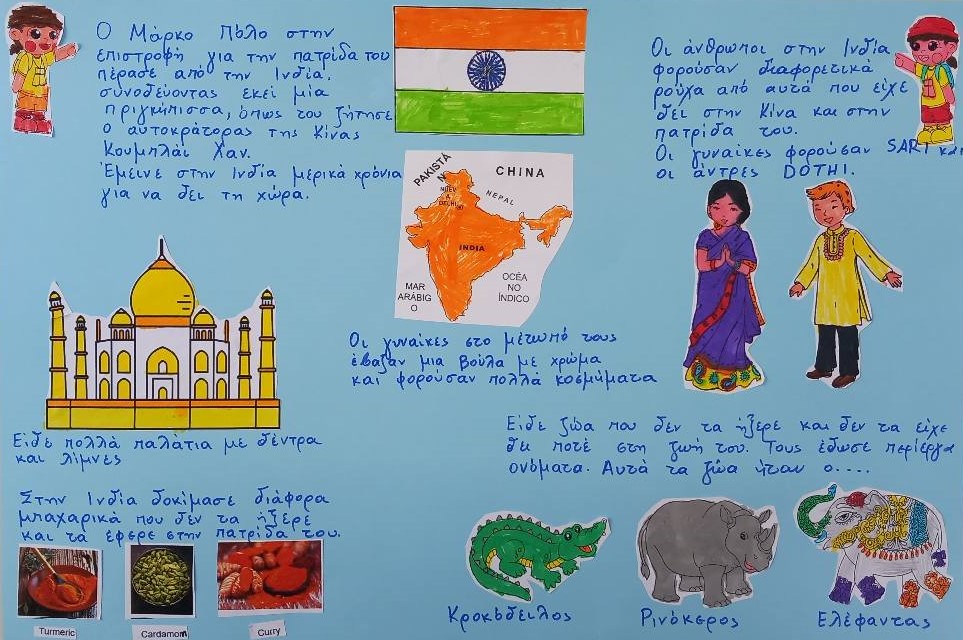 Ο Μάρκο Πόλο στην
επιστροφή για την πατρίδα του
πέρασε από την Ινδία.
συνοδεύοντας εκεί μία
πριγκήπισσα, όπως του ζήτησε
ο αυτοκράτορας της Κίνας
Κουμπλάι Χαν.
Έμεινε στην Ινδία μερικά χρόνια
για να δει τη χώρα.
Οι άνθρωποι στην Ινδία
φορούσαν διαφορετικά
ρούχα από αυτά που είχε
δει στην Κίνα και στην
πατρίδα του.
Οι γυναίκες φορούσαν SARI και
οι άντρες DOTHI.
PAKISTÁ
N
CHINA
NUEV
A
DELHI
NEPAL
INDIA
MAR
ARÁBIG
O
OCÉA
NO
ÍNDICO
Οι γυναίκες στο μέτωπό τους
έβαζαν μια βούλα με χρώμα
και φορούσαν πολλά κοσμήματα
Είδε πολλά παλάτια με δέντρα
και λίμνες
Είδε ζώα που δεν τα ήξερε και δεν τα είχε
δει ποτέ στη ζωή του. Τους έδωσε περίεργα
ονόματα. Αυτά τα ζώα ήταν ο....
Στην Ινδία δοκίμασε διάφορα
μπαχαρικά που δεν τα ήξερε
και τα έφερε στην πατρίδα του.
Turmeric
Cardamom
Curry
Κροκόδειλος
Ρινόκερος
Ελέφαντας